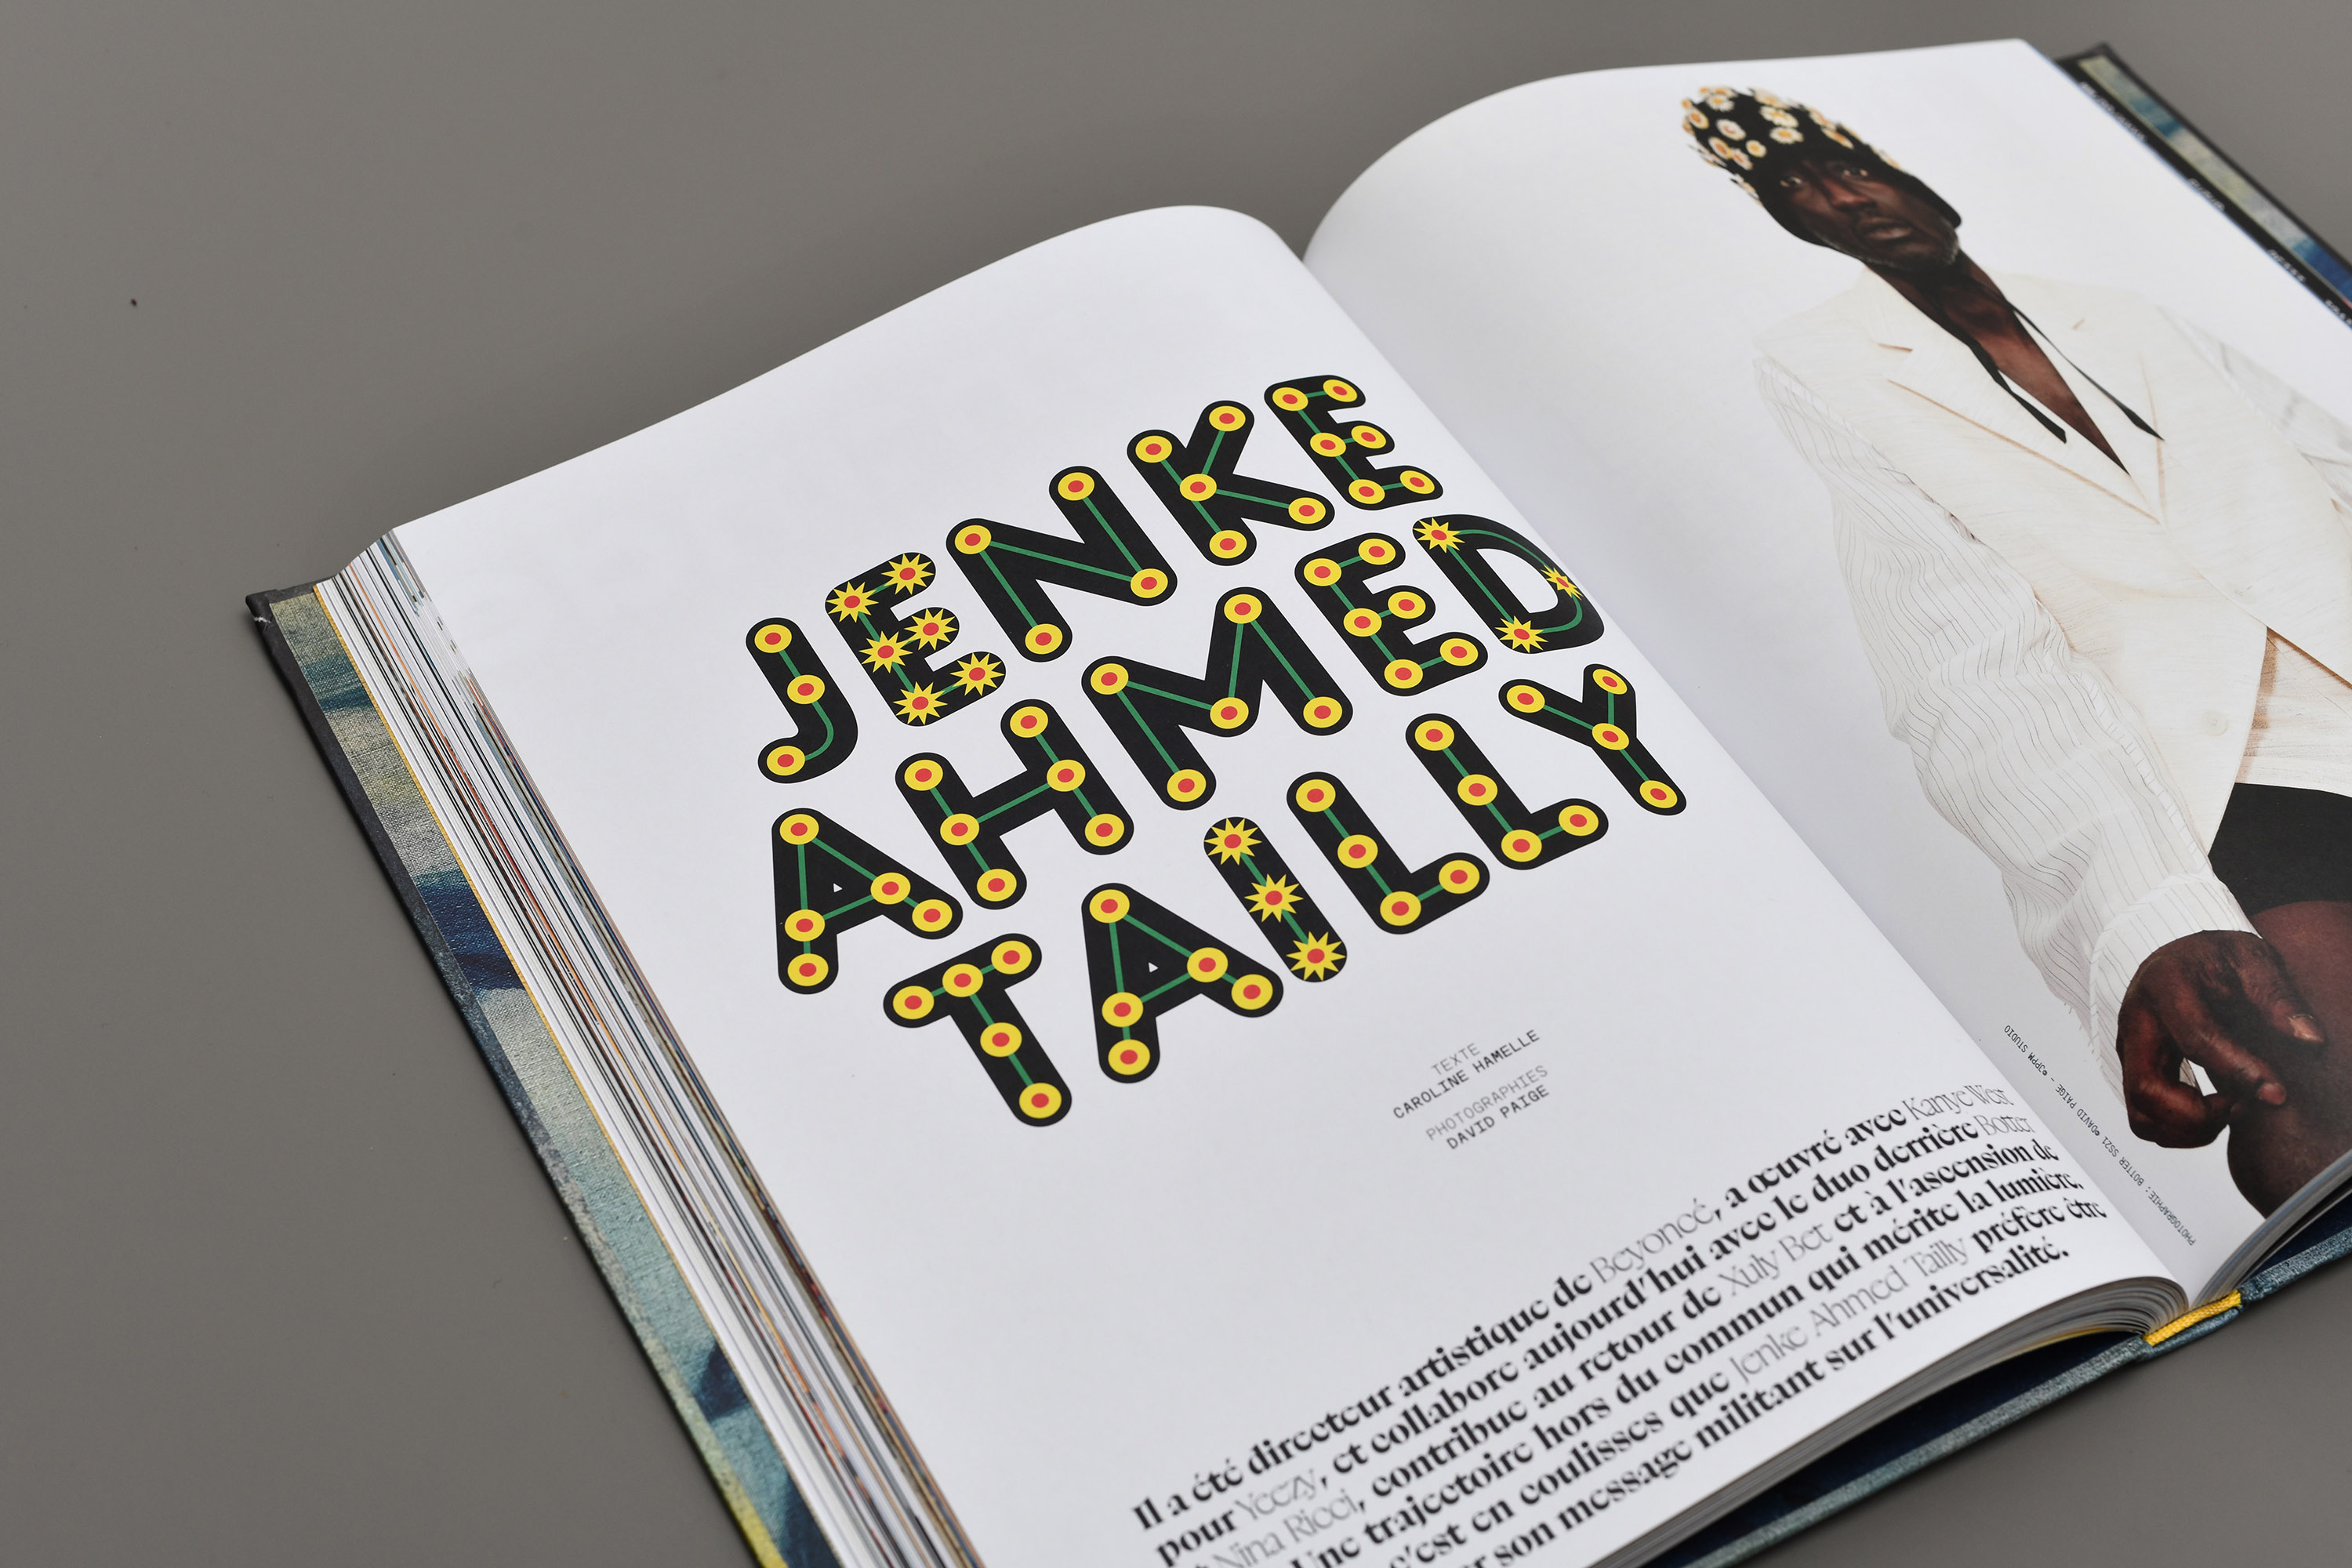 JENKE
AHMED
TAILLY
TEXTE
CAROLINE HAMELLE
PHOTOGRAPHIES
DAVID PAIGE
Il a été directeur artistique de Beyoncé, a œuvré avec Kanye West
pour Yeezy, et collabore aujourd'hui avec le duo derrière Botter
Nina Ricci, contribue au retour de Xuly Bët et à l'ascension de
Une trajectoire hors du commun qui mérite la lumière,
c'est en coulisses que Jenke Ahmed Tailly préfère être
son message militant sur l'universalité.
PHOTOGRAPHIE: BOTTER SS21 ©DAVID PAIGE - ©JPPM STUDIO